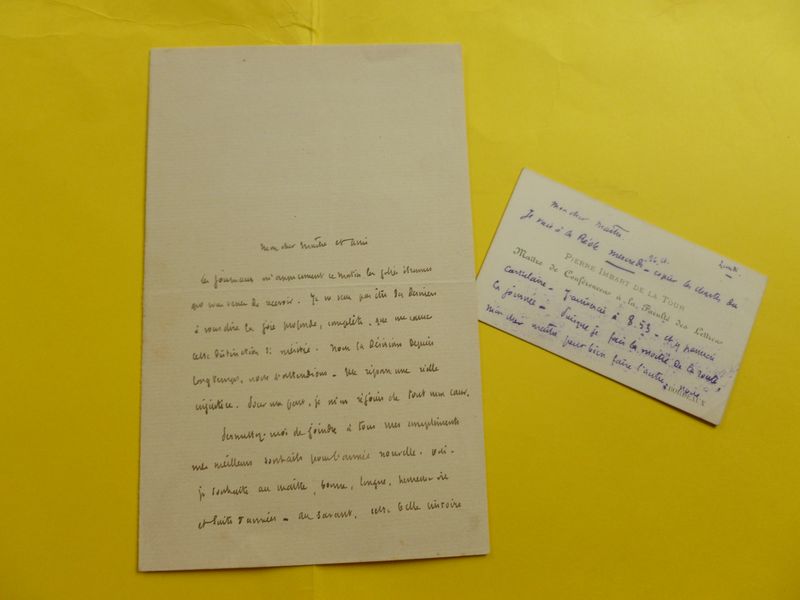 Mon cher Maître et ami
Les journaux m'annoncent ce matin les jolies étrennes
que vous venez de recevoir. Je ne veux pas être des derniers
à vous dire la joie profonde, complète, que me cause
cette distinction si méritée. Nous la désirions depuis
longtemps, nous l'attendions. Elle répare une vieille
injustice. Pour ma part, je m'en réjouis de tout mon cœur.
Permettez-moi de joindre à tous mes compliments
mes meilleurs souhaits pour l'année nouvelle.
je souhaite au maître, bonne, longue, heureuse vie
et suite d'années - au savant, cette belle histoire
Mon cher Maître,
Lundi
Je vais à la Réole mercredi - copier les chartes du
PIERRE IMBART DE LA TOUR
Maître de Conférences à la Faculté des Lettres
cartulaire - J'arriverai à 8.53 - et y passerai
la journée - Puisque je fais la moitié de la route,
mon cher maître pour bien faire l'autre
BORDEAUX